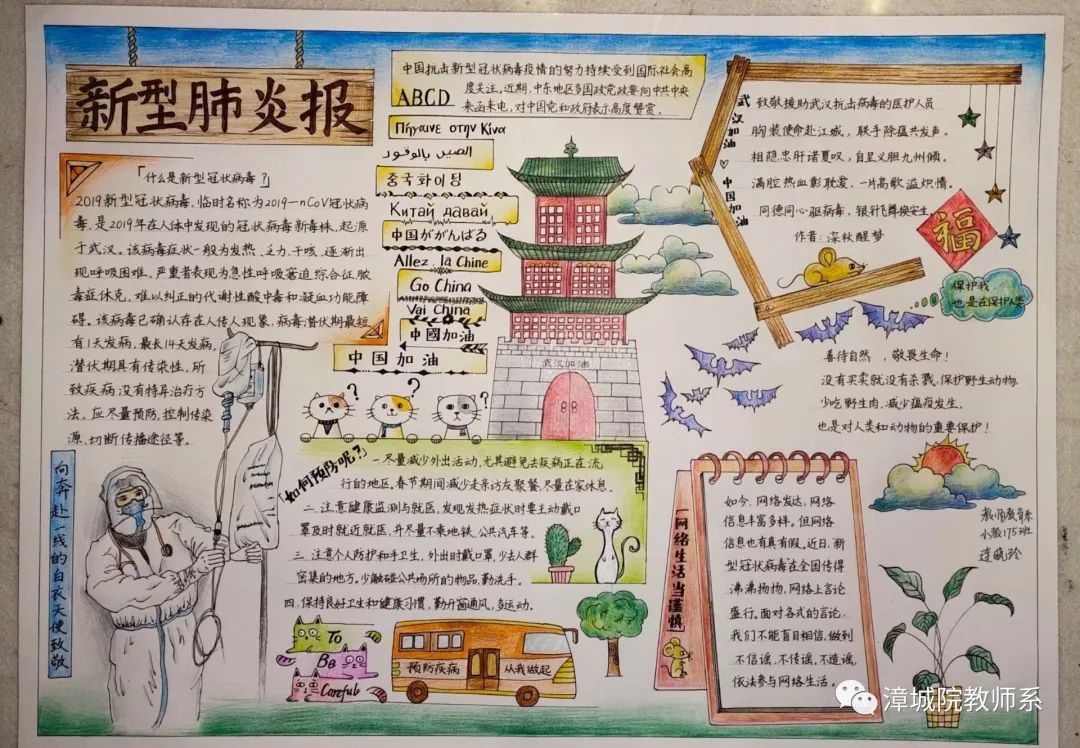 新型肺炎报
「什么是新型冠状病毒?」
2019新型冠状病毒，临时名称为2019-nCoV冠状病
毒，是2019年在人体中发现的冠状病毒新毒株，起源
于武汉。该病毒症状一般为发热、乏力、干咳、逐渐出
现呼吸困难，严重者表现为急性呼吸窘迫综合征脓
毒症休克，难以纠正的代谢性酸中毒和凝血功能障
碍。该病毒已确认存在人传人现象，病毒潜伏期最短
有1天发病，最长14天发病，
潜伏期具有传染性，所
致疾病没有特异治疗方
法。应尽量预防，控制传染
源，切断传播途径等。
向奔赴一线的白衣天使致敬
中国抗击新型冠状病毒疫情的努力持续受到国际社会高
度关注。近期，中东地区多国政党政要向中共中央
来函来电，对中国党和政府表示高度赞赏。
ABCD
Πήγαινε στην Κίνα
الصين بالوقود
중국화이팅
Китай давай
中国ががんばる
Allez, la Chine
Go China
Vai China
中國加油
中国加油
武汉加油
「如何预防呢?」
一.尽量减少外出活动，尤其避免去疾病正在流
行的地区，春节期间减少走亲访友聚餐，尽量在家休息。
二.注意健康监测与就医，发现发热症状时要主动戴口
罩及时就近就医，并尽量不乘地铁、公共汽车等。
三.注意个人防护和手卫生，外出时戴口罩，少去人群
密集的地方。少触碰公共场所的物品，勤洗手。
四.保持良好卫生和健康习惯，勤开窗通风，多运动。
To
Be
Careful
预防疾病
从我做起
武汉加油♡中国加油
致敬援助武汉抗击病毒的医护人员
胸装使命赴江城，联手除瘟共发声。
相隐忠肝诸夏叹，自呈义胆九州倾。
满腔热血彰耽爱，一片高歌溢炽情。
同德同心驱病毒，银针飞舞换安生。
作者：深秋醒梦
福
保护我，
也是在保护人类
善待自然，敬畏生命！
没有买卖就没有杀戮，保护野生动物，
少吃野生肉，减少瘟疫发生，
也是对人类和动物的重要保护！
网络生活当谨慎
如今，网络发达，网络
信息丰富多样。但网络
信息也有真有假。近日，新
型冠状病毒在全国传得
沸沸扬扬，网络上言论
盛行。面对各式的言论，
我们不能盲目相信，做到
不信谣，不传谣，不造谣，
依法参与网络生活。
教师教育系
小教175班
漳城院教师系